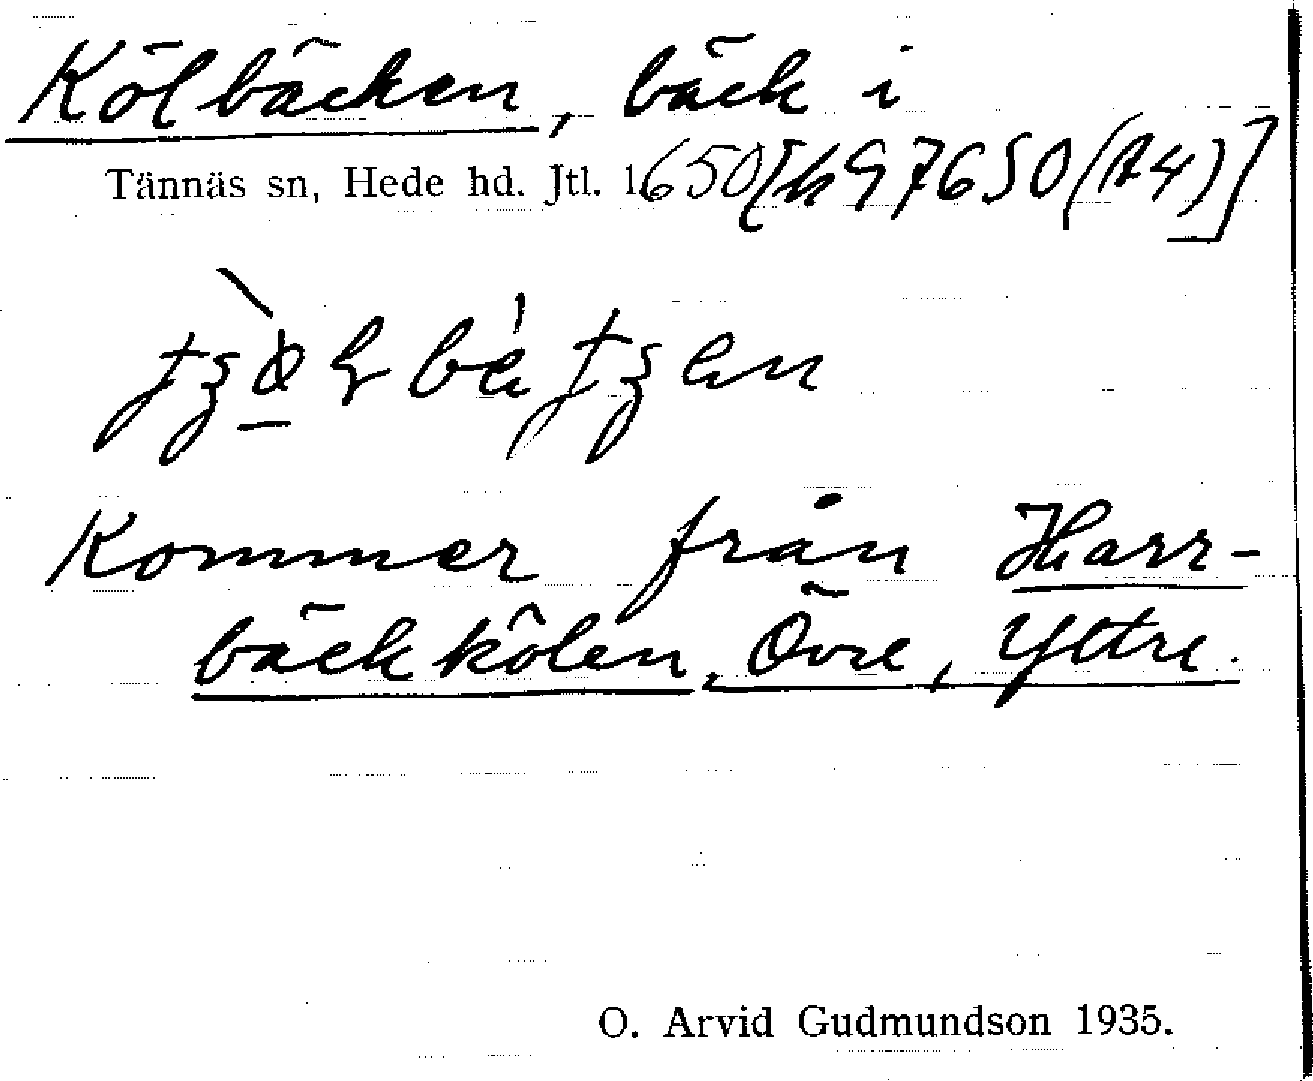 Kölbäcken, bäck i
Tännäs sn, Hede hd. Jtl. l. 650 [k 97650 (A4)]
Kommer från Harr-
bäckkölen, Övre, Yttre.
O. Arvid Gudmundson 1935.